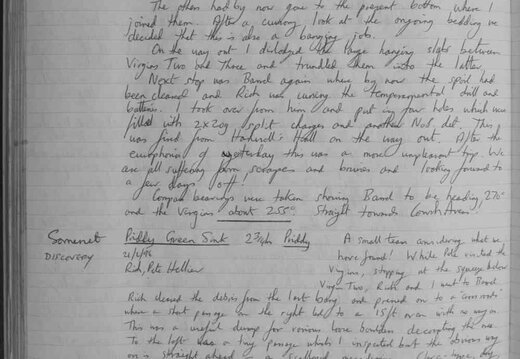 The others had by now gone to the present bottom where I
joined them. After a cursory look at the ongoing bedding we
decided that this is also a banging job.
On the way out I dislodged the large hanging slabs between
Virgin Two and Three and trundled them into the latter.
Next stop was Band again where by now the spoil had
been cleared and Rich was cursing the temperamental drill and
batteries. I took over from him and put in four holes which were
filled with 2x20g split charges and another No8 det. This
was fired from Hallowe'll Hall on the way out. After the
euphoria of yesterday this was a more unpleasant trip. We
are all suffering from scrapes and bruises and looking forward to
a few days off!
Compass bearings were taken showing Band to be heading 270°
and the Virgins about 255° straight towards
Somerset
DISCOVERY
Priddy Green Sink 2¾h Priddy
21/1/96
Rich, Pete Hellier
A small team considering what we
have found! While Pete visited the
Virgins, stopping at the squeeze below
Virgin Two, Rich and I went to Band
Rich cleared the debris from the last bang and pressed on to a cross roads
where a short passage on the right led to a 15ft aven with no way on.
This was a useful dump for various loose boulders decorating the
To the left was a tiny passage which I inspected but the obvious way
on is straight ahead in a